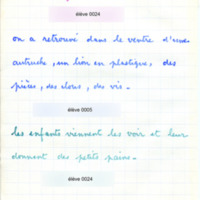 élève 0024
on a retrouvé dans le ventre d'une
autruche, un lion en plastique, des
pièces, des clous, des vis.
élève 0005
les enfants viennent les voir et leur
donnent des petits pains.
élève 0024